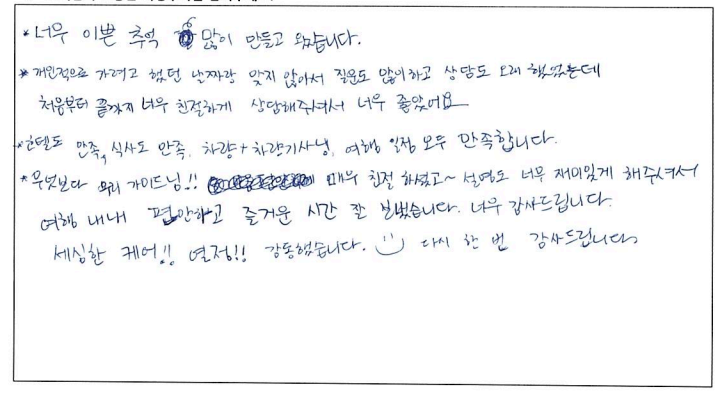 * 너무 이쁜 추억 많이 만들고 왔습니다.
* 개인적으로 가려고 했던 날짜랑 맞지 않아서 질문도 많이하고 상담도 오래 했었는데
처음부터 끝까지 너무 친절하게 상담해주셔서 너무 좋았어요
* 호텔도 만족, 식사도 만족, 차량+차량기사님, 여행 일정 모두 만족합니다.
* 무엇보다 우리 가이드님!! 매우 친절 하셨고~ 설명도 너무 재미있게 해주셔서
여행 내내 편안하고 즐거운 시간 잘 보냈습니다. 너무 감사드립니다.
세심한 케어!! 열정!! 감동했습니다. 다시 한 번 감사드립니다.